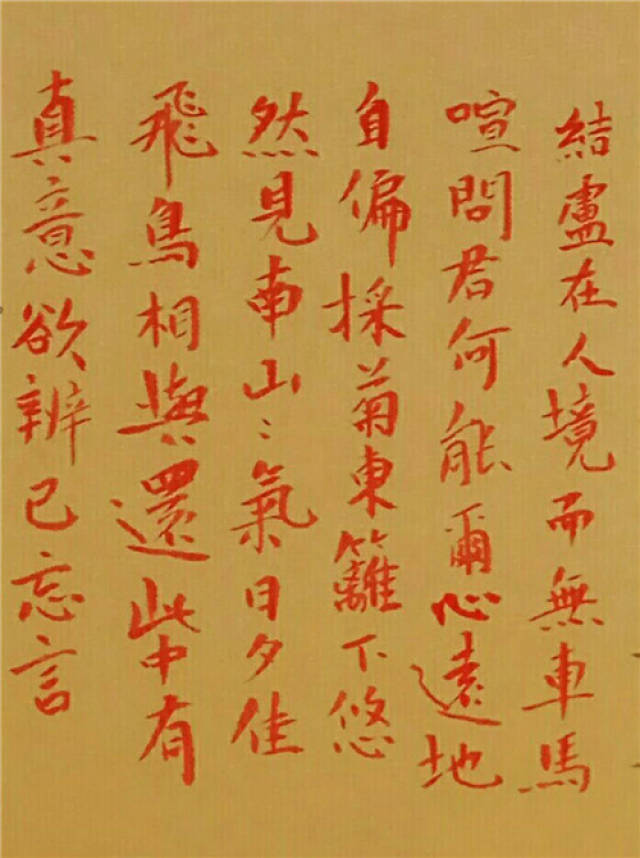 結盧在人境而無車馬
喧問君何能爾心遠地
自偏採菊東籬下悠
然見南山〻氣日夕佳
飛鳥相與還此中有
真意欲辨已忘言